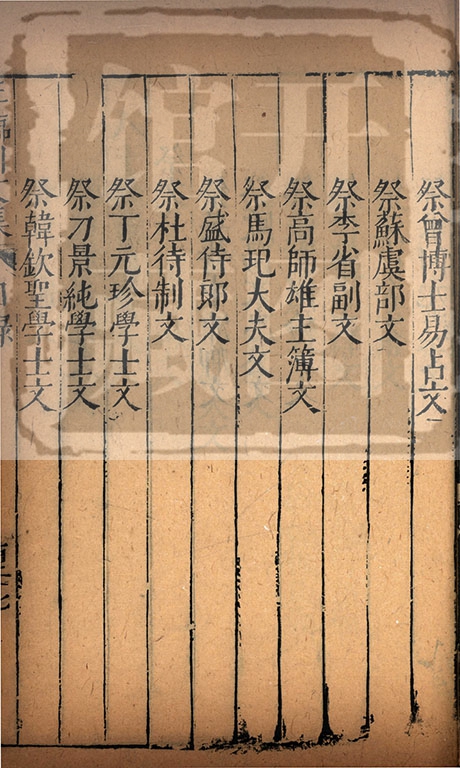 祭曾博士易占文
祭蘇虞部文
祭李省副文
祭高師雄主簿文
祭馬玘大夫文
祭盛侍郎文
祭杜待制文
祭丁元珍學士文
祭刁景純學士文
祭韓欽聖學士文